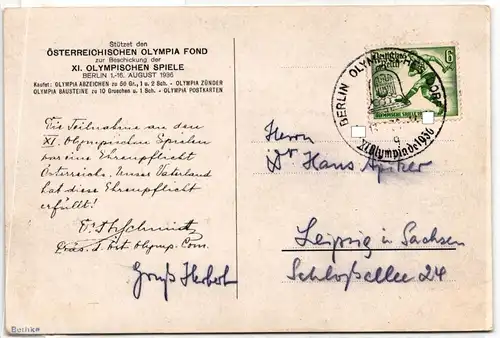 Stützet den
ÖSTERREICHISCHEN OLYMPIA FOND
zur Beschickung der
XI. OLYMPISCHEN SPIELE
BERLIN 1.-16. AUGUST 1936
Kaufet: OLYMPIA ABZEICHEN zu 50 Gr., 1 u. 2 Sch. - OLYMPIA ZÜNDER
OLYMPIA BAUSTEINE zu 10 Groschen u. 1 Sch. - OLYMPIA POSTKARTEN
Die Teilnahme an den
XI. Olympischen Spielen
war eine Ehrenpflicht
Österreichs. Unser Vaterland
hat diese Ehrenpflicht
erfüllt!
Präs. d. Öst. Olymp. Com.
Gruß Herbert
6
BERLIN OLYMPISCHES DORF
XI. Olympiade 1936
Herrn
Dr Hans
Leipzig in Sachsen
24
Bethke